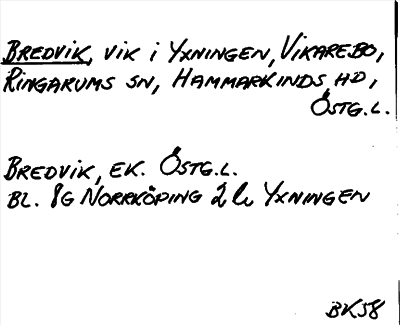 BREDVIK, VIK I YXNINGEN, VIKAREBO,
RINGARUMS SN, HAMMARKINDS HD,
ÖSTG.L.
BREDVIK, EK. ÖSTG.L.
BL. 8G NORRKÖPING 2 YXNINGEN
BK58